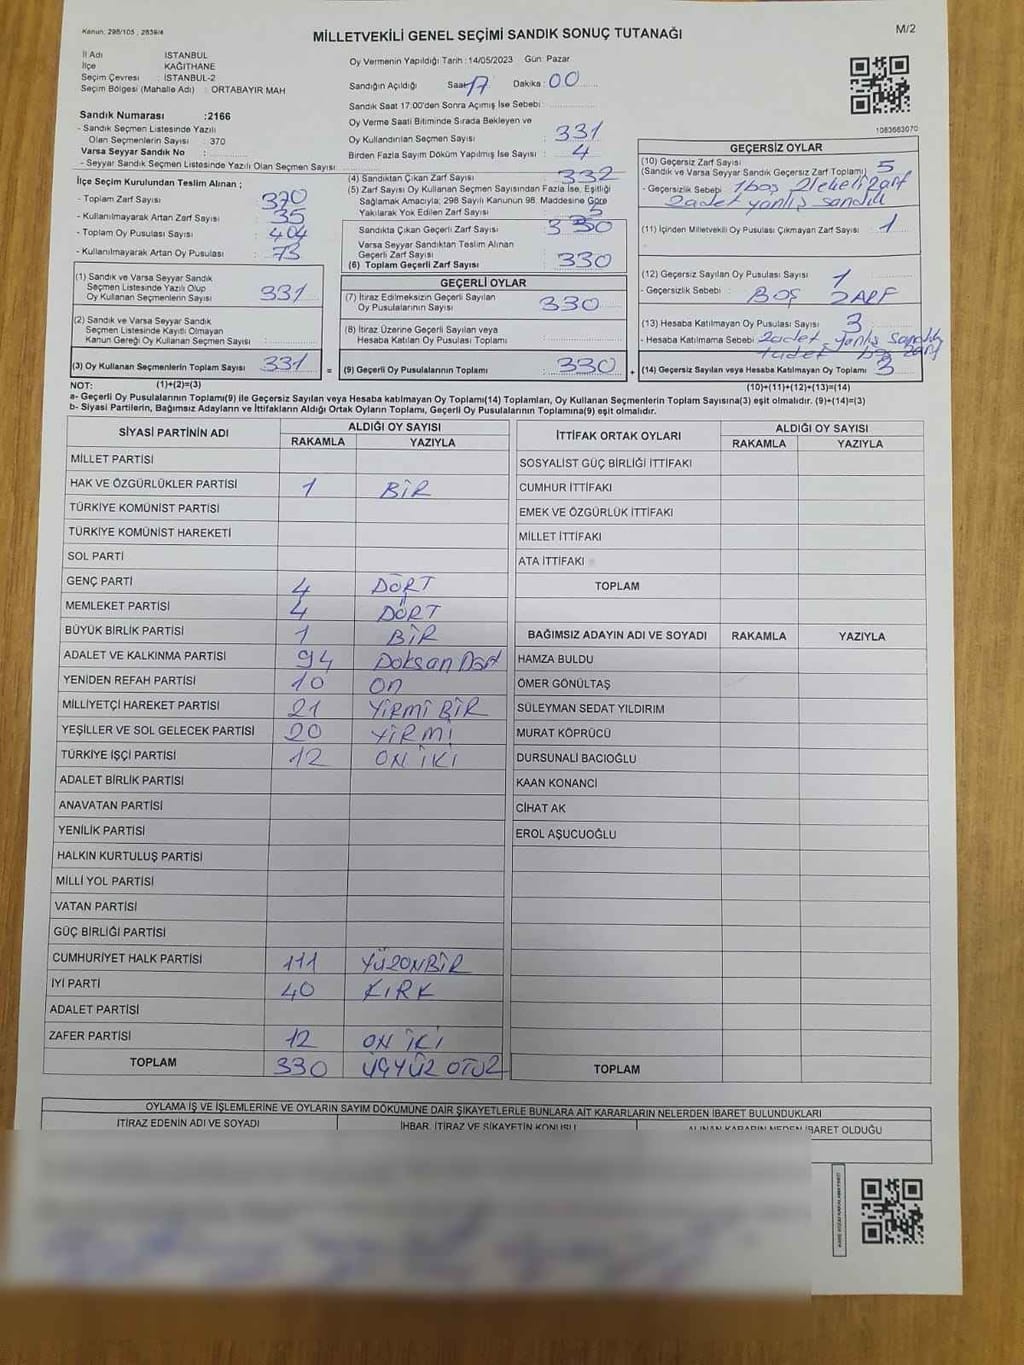 Kanun: 298/105 , 2839/4
MİLLETVEKİLİ GENEL SEÇİMİ SANDIK SONUÇ TUTANAĞI
M/2
İl Adı İSTANBUL
İlçe KAĞITHANE
Seçim Çevresi : İSTANBUL-2
Seçim Bölgesi (Mahalle Adı) : ORTABAYIR MAH
Sandık Numarası :2166
- Sandık Seçmen Listesinde Yazılı
Olan Seçmenlerin Sayısı : 370
Varsa Seyyar Sandık No :
- Seyyar Sandık Seçmen Listesinde Yazılı Olan Seçmen Sayısı
İlçe Seçim Kurulundan Teslim Alınan ;
- Toplam Zarf Sayısı : 370
- Kullanılmayarak Artan Zarf Sayısı : 35
- Toplam Oy Pusulası Sayısı : 404
- Kullanılmayarak Artan Oy Pusulası : 73
(1) Sandık ve Varsa Seyyar Sandık
Seçmen Listesinde Yazılı Olup
Oy Kullanan Seçmenlerin Sayısı : 331
(2) Sandık ve Varsa Seyyar Sandık
Seçmen Listesinde Kayıtlı Olmayan
Kanun Gereği Oy Kullanan Seçmen Sayısı :
(3) Oy Kullanan Seçmenlerin Toplam Sayısı 331
Oy Vermenin Yapıldığı Tarih : 14/05/2023 Gün: Pazar
Sandığın Açıldığı Saat: 17 Dakika: 00
Sandık Saat 17:00'den Sonra Açımış İse Sebebi:
Oy Verme Saati Bitiminde Sırada Bekleyen ve
Oy Kullandırılan Seçmen Sayısı : 331
Birden Fazla Sayım Döküm Yapılmış İse Sayısı : 4
(4) Sandıktan Çıkan Zarf Sayısı : 332
(5) Zarf Sayısı Oy Kullanan Seçmen Sayısından Fazla İse, Eşitliği
Sağlamak Amacıyla; 298 Sayılı Kanunun 98. Maddesine Göre
Yakılarak Yok Edilen Zarf Sayısı :
Sandıkta Çıkan Geçerli Zarf Sayısı : 330
Varsa Seyyar Sandıktan Teslim Alınan
Geçerli Zarf Sayısı :
(6) Toplam Geçerli Zarf Sayısı : 330
GEÇERLİ OYLAR
(7) İtiraz Edilmeksizin Geçerli Sayılan
Oy Pusulalarının Sayısı : 330
(8) İtiraz Üzerine Geçerli Sayılan veya
Hesaba Katılan Oy Pusulası Toplamı :
= (9) Geçerli Oy Pusulalarının Toplamı : 330
1083663070
GEÇERSİZ OYLAR
(10) Geçersiz Zarf Sayısı
(Sandık ve Varsa Seyyar Sandık Geçersiz Zarf Toplamı) : 5
- Geçersizlik Sebebi : 1 boş 2 lekeli zarf
2 adet yanlış sandık
(11) İçinden Milletvekili Oy Pusulası Çıkmayan Zarf Sayısı : 1
(12) Geçersiz Sayılan Oy Pusulası Sayısı : 1
- Geçersizlik Sebebi : BOŞ ZARF
(13) Hesaba Katılmayan Oy Pusulası Sayısı : 3
- Hesaba Katılmama Sebebi : 2 adet yanlış sandık
1 adet boş zarf
+ (14) Geçersiz Sayılan veya Hesaba Katılmayan Oy Toplamı : 3
NOT: (1)+(2)=(3) (10)+(11)+(12)+(13)=(14)
a- Geçerli Oy Pusulalarının Toplamı(9) ile Geçersiz Sayılan veya Hesaba katılmayan Oy Toplamı(14) Toplamları, Oy Kullanan Seçmenlerin Toplam Sayısına(3) eşit olmalıdır. (9)+(14)=(3)
b- Siyasi Partilerin, Bağımsız Adayların ve İttifakların Aldığı Ortak Oyların Toplamı, Geçerli Oy Pusulalarının Toplamına(9) eşit olmalıdır.
SİYASİ PARTİNİN ADI ALDIĞI OY SAYISI
RAKAMLA YAZIYLA
MİLLET PARTİSİ
HAK VE ÖZGÜRLÜKLER PARTİSİ 1 BİR
TÜRKİYE KOMÜNİST PARTİSİ
TÜRKİYE KOMÜNİST HAREKETİ
SOL PARTİ
GENÇ PARTİ 4 DÖRT
MEMLEKET PARTİSİ 4 DÖRT
BÜYÜK BİRLİK PARTİSİ 1 BİR
ADALET VE KALKINMA PARTİSİ 94 Doksan Dört
YENİDEN REFAH PARTİSİ 10 on
MİLLİYETÇİ HAREKET PARTİSİ 21 YİRMİ BİR
YEŞİLLER VE SOL GELECEK PARTİSİ 20 YİRMİ
TÜRKİYE İŞÇİ PARTİSİ 12 ON İKİ
ADALET BİRLİK PARTİSİ
ANAVATAN PARTİSİ
YENİLİK PARTİSİ
HALKIN KURTULUŞ PARTİSİ
MİLLİ YOL PARTİSİ
VATAN PARTİSİ
GÜÇ BİRLİĞİ PARTİSİ
CUMHURİYET HALK PARTİSİ 111 YÜZONBİR
İYİ PARTİ 40 KIRK
ADALET PARTİSİ
ZAFER PARTİSİ 12 ON İKİ
TOPLAM 330 ÜÇYÜZ OTUZ
İTTİFAK ORTAK OYLARI ALDIĞI OY SAYISI
RAKAMLA YAZIYLA
SOSYALİST GÜÇ BİRLİĞİ İTTİFAKI
CUMHUR İTTİFAKI
EMEK VE ÖZGÜRLÜK İTTİFAKI
MİLLET İTTİFAKI
ATA İTTİFAKI
TOPLAM
BAĞIMSIZ ADAYIN ADI VE SOYADI RAKAMLA YAZIYLA
HAMZA BULDU
ÖMER GÖNÜLTAŞ
SÜLEYMAN SEDAT YILDIRIM
MURAT KÖPRÜCÜ
DURSUNALİ BACIOĞLU
KAAN KONANCI
CİHAT AK
EROL AŞUCUOĞLU
TOPLAM
OYLAMA İŞ VE İŞLEMLERİNE VE OYLARIN SAYIM DÖKÜMÜNE DAİR ŞİKAYETLERLE BUNLARA AİT KARARLARIN NELERDEN İBARET BULUNDUKLARI
İTİRAZ EDENİN ADI VE SOYADI İHBAR, İTİRAZ VE ŞİKAYETİN KONUSU ALINAN KARARIN NEDEN İBARET OLDUĞU